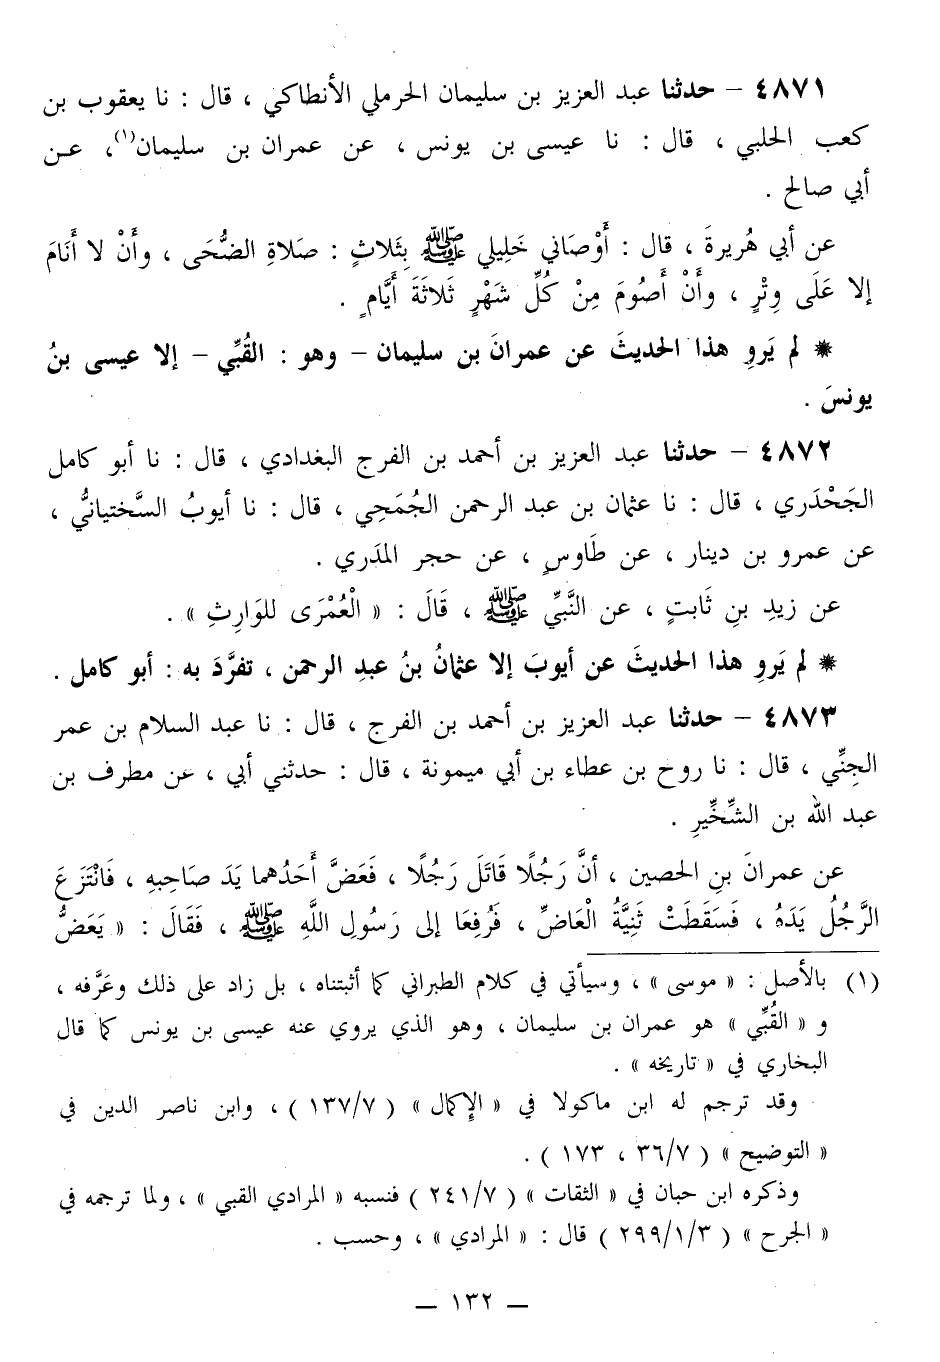 ٤٨٧١ – حدثنا عبد العزيز بن سليمان الحرملي الأنطاكي ، قال : نا يعقوب بن
كعب الحلبي ، قال : نا عيسى بن يونس ، عن عمران بن سليمان(١)، عـن
أبي صالح .
عن أبي هُريرةَ ، قال : أَوْصَاني خَلِيلي ﷺ بِثَلاثٍ : صَلاةِ الضُّحَى ، وأَنْ لا أَنَامَ
إلا عَلَى وِتْرٍ ، وأَنْ أَصُومَ مِنْ كُلِّ شَهْرٍ ثَلاثَةَ أَيَّامٍ .
* لم يَروِ هذا الحديثَ عن عمرانَ بن سليمان – وهو : القُبِّي – إلا عيسى بنُ
يونسَ .
٤٨٧٢ – حدثنا عبد العزيز بن أحمد بن الفرج البغدادي ، قال : نا أبو كامل
الجَحْدَري ، قال : نا عثمان بن عبد الرحمن الجُمَحِي ، قال : نا أيوبُ السَّختيانيُّ ،
عن عمرو بن دينار ، عن طَاوسٍ ، عن حجر المدَري .
عن زيدِ بنِ ثَابتٍ ، عن النَّبيِّ ﷺ ، قَالَ : « الْعُمْرَى للوَارِثِ » .
* لم يَروِ هذا الحديثَ عن أيوبَ إلا عثمانُ بنُ عبدِ الرحمن ، تفرَّدَ به : أبو كامل .
٤٨٧٣ – حدثنا عبد العزيز بن أحمد بن الفرج ، قال : نا عبد السلام بن عمر
الجِنِّي ، قال : نا روح بن عطاء بن أبي ميمونة ، قال : حدثني أبي ، عن مطرف بن
عبد الله بن الشِّخِّيرِ .
عن عمرانَ بنِ الحصين ، أنَّ رَجُلًا قَاتَلَ رَجُلًا ، فَعَضَّ أَحَدُهما يَدَ صَاحِبهِ ، فَانْتَزَعَ
الرَّجُلُ يَدَهُ ، فَسَقَطَتْ ثَنِيَّةُ الْعَاضِّ ، فَرُفِعَا إلى رَسُولِ اللَّهِ ﷺ ، فَقَالَ : « يَعَضُّ
(١) بالأصل : « موسى » ، وسيأتي في كلام الطبراني كما أثبتناه ، بل زاد على ذلك وعَرَّفه ،
و « القُبِّي » هو عمران بن سليمان ، وهو الذي يروي عنه عيسى بن يونس كما قال
البخاري في « تاريخه » .
وقد ترجم له ابن ماكولا في « الإكمال » ( ١٣٧/٧ ) ، وابن ناصر الدين في
« التوضيح » ( ٣٦/٧ ، ١٧٣ ) .
وذكره ابن حبان في « الثقات » ( ٢٤١/٧ ) فنسبه « المرادي القبي » ، ولما ترجمه في
« الجرح » ( ٢٩٩/١/٣ ) قال : « المرادي » ، وحسب .
– ١٣٢ –